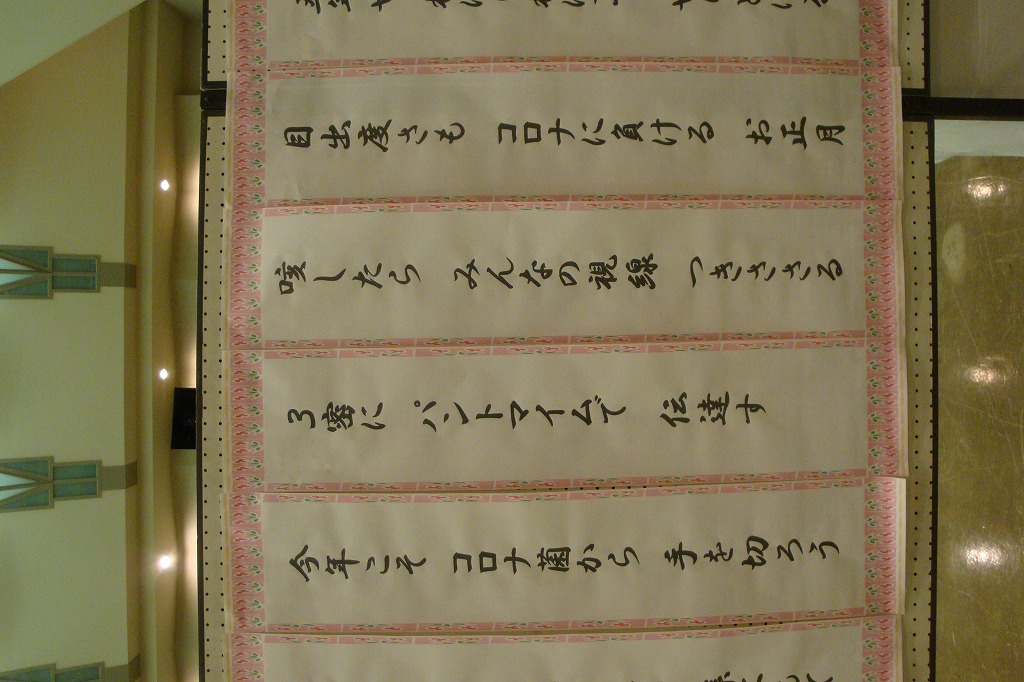 目出度さも コロナに負ける お正月
咳したら みんなの視線 つきささる
3密に パントマイムで 伝達す
今年こそ コロナ菌から 手を切ろう